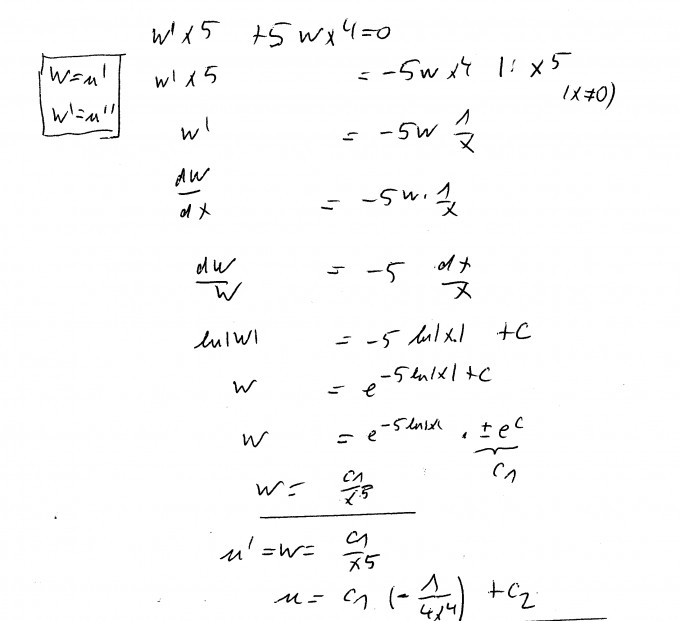 w' x5 +5 w x4=0
w=u' w' x5 = -5w x4 |: x5
w'=u'' (x≠0)
w' = -5w 1/x
dw/dx = -5w · 1/x
dw/w = -5 dx/x
ln|w| = -5 ln|x| +C
w = e^-5 ln|x| +C
w = e^-5 ln|x| · ±e^C
C1
w = C1/x5
u' = w = C1/x5
u = C1 (- 1/4x4) +C2